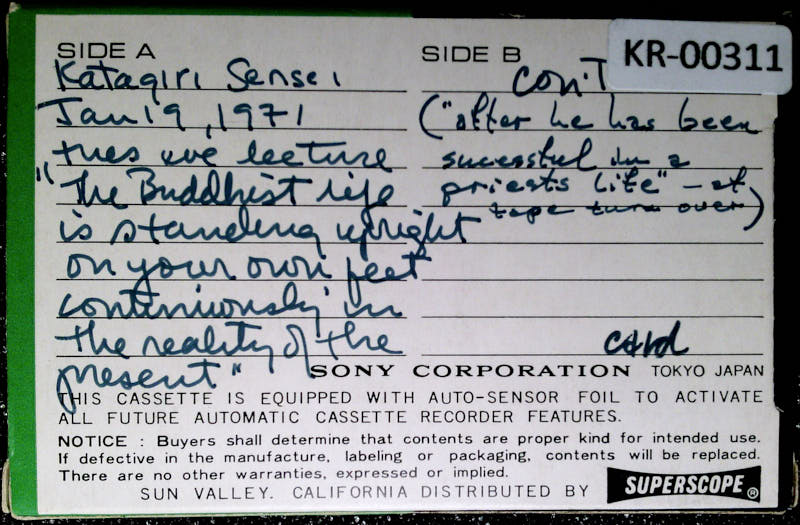 SIDE A
Katagiri Sensei
Jan 19, 1971
tues eve lecture
"The Buddhist life
is standing upright
on your own feet
continuously in
the reality of the
present"
SIDE B
KR-00311
con't
("after he has been
sucessful in a
priests life" – at
tape turn over)
card
SONY CORPORATION TOKYO JAPAN
THIS CASSETTE IS EQUIPPED WITH AUTO-SENSOR FOIL TO ACTIVATE
ALL FUTURE AUTOMATIC CASSETTE RECORDER FEATURES.
NOTICE : Buyers shall determine that contents are proper kind for intended use.
If defective in the manufacture, labeling or packaging, contents will be replaced.
There are no other warranties, expressed or implied.
SUN VALLEY. CALIFORNIA DISTRIBUTED BY SUPERSCOPE®